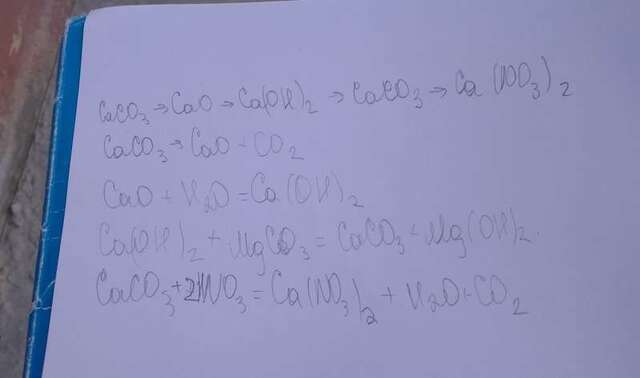 CaCO3→CaO→Ca(OH)2→CaCO3→Ca(NO3)2
CaCO3→CaO+CO2
CaO+H2O=Ca(OH)2
Ca(OH)2+MgCO3=CaCO3+Mg(OH)2.
CaCO3+2HNO3=Ca(NO3)2+H2O+CO2